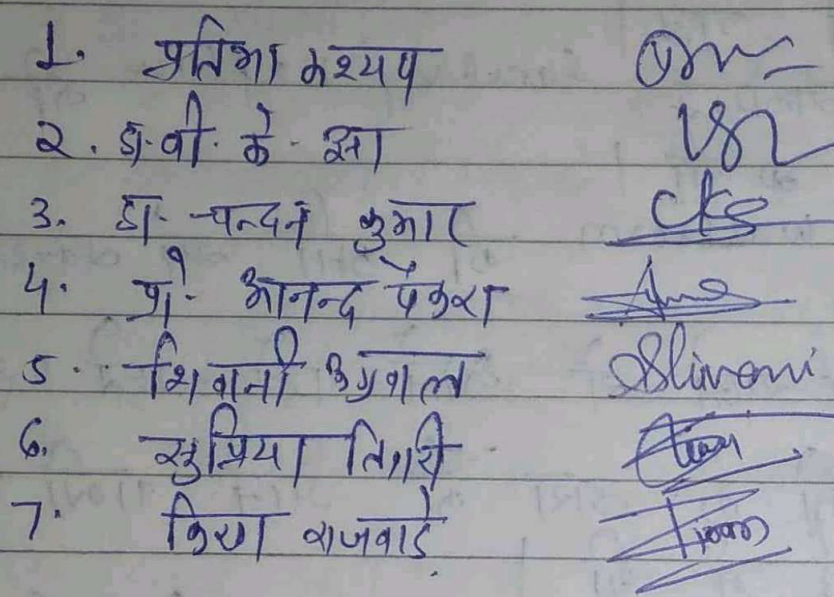 1. प्रतिभा कश्यप
2. डॉ. वी. के. झा
3. डा. चन्दन कुमार
4. प्रो. आनन्द पैकरा
5. शिवानी अग्रवाल Shivani
6. सुप्रिया तिवारी
7. किरण राजवाडे